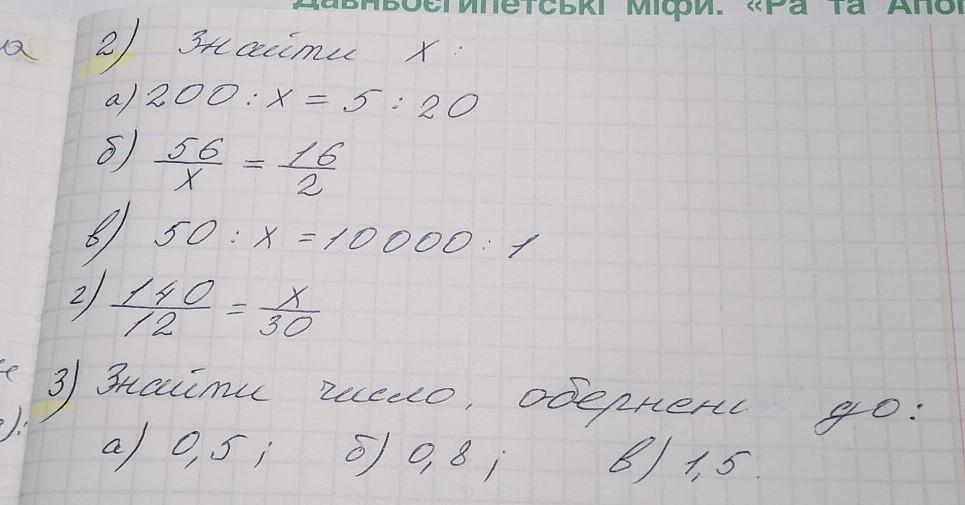 Давньоєгипетські міфи. «Ра та Апоп
2) Знайти x:
а) 200 : x = 5 : 20
б) 56/x = 16/2
в) 50 : x = 10000 : 1
г) 140/12 = x/30
3) Знайти число, обернені до:
а) 0,5; б) 0,8; в) 1,5.